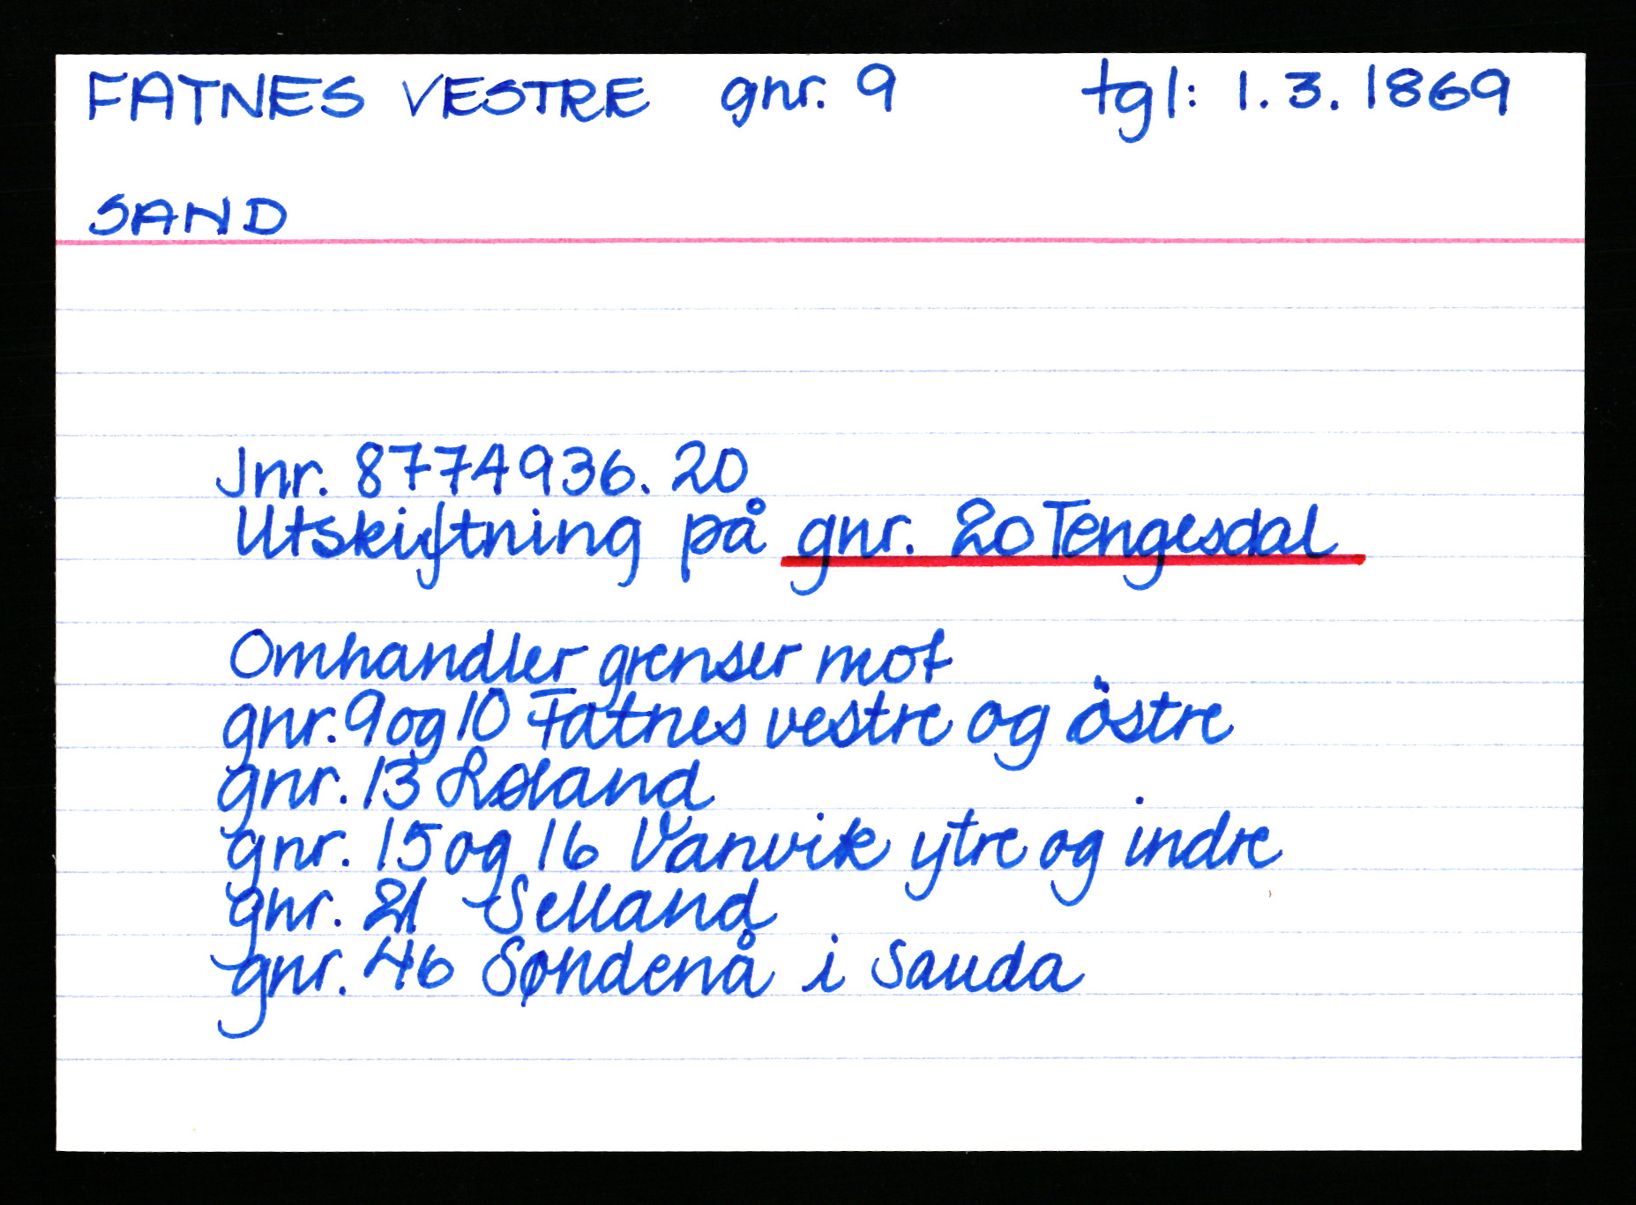 FATNES VESTRE gnr. 9 tgl: 1.3.1869
SAND
Jnr. 8774936.20
Utskiftning på gnr. 20 Tengesdal
Omhandler grenser mot
gnr. 9 og 10 Fatnes vestre og östre
gnr. 13 Løland
gnr. 15 og 16 Vanvik ytre og indre
gnr. 21 Selland
gnr. 46 Søndenå i Sauda